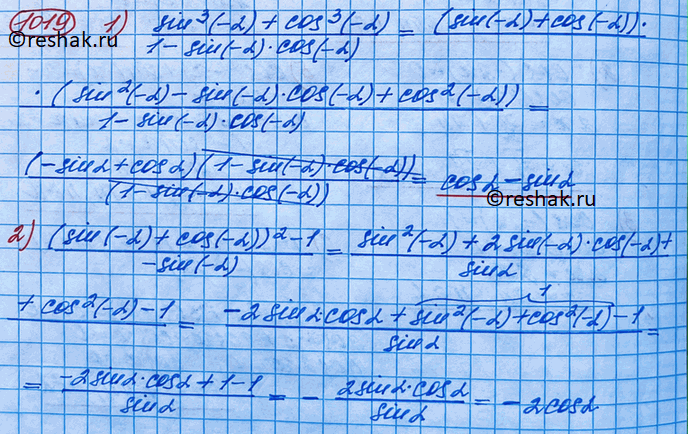 1019 1) (sin³(-α) + cos³(-α))/(1 - sin(-α)·cos(-α)) = (sin(-α) + cos(-α))·
©reshak.ru
·(sin²(-α) - sin(-α)·cos(-α) + cos²(-α))/(1 - sin(-α)·cos(-α)) =
(-sinα + cosα)(1 - sin(-α)·cos(-α))/(1 - sin(-α)·cos(-α)) = cosα - sinα
©reshak.ru
2) ((sin(-α) + cos(-α))² - 1)/(-sin(-α)) = (sin²(-α) + 2sin(-α)·cos(-α) +)/(sinα)
1
+ cos²(-α) - 1 = (-2sinα·cosα + sin²(-α) + cos²(-α) - 1)/(sinα) =
= (-2sinα·cosα + 1 - 1)/(sinα) = - (2sinα·cosα)/(sinα) = -2cosα